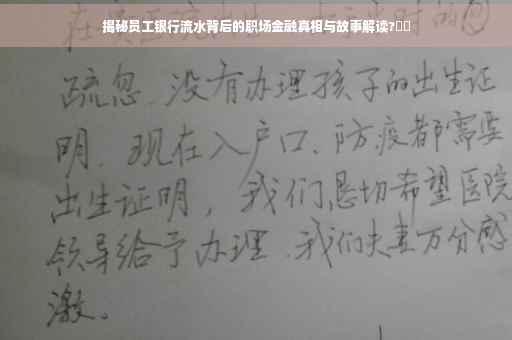 揭秘员工银行流水背后的职场金融真相与故事解读?
疏忽.没有办理孩子的出生证
明.现在入户口、防疫都需要
出生证明，我们恳切希望医院
领导给予办理.我们夫妻万分感
激。